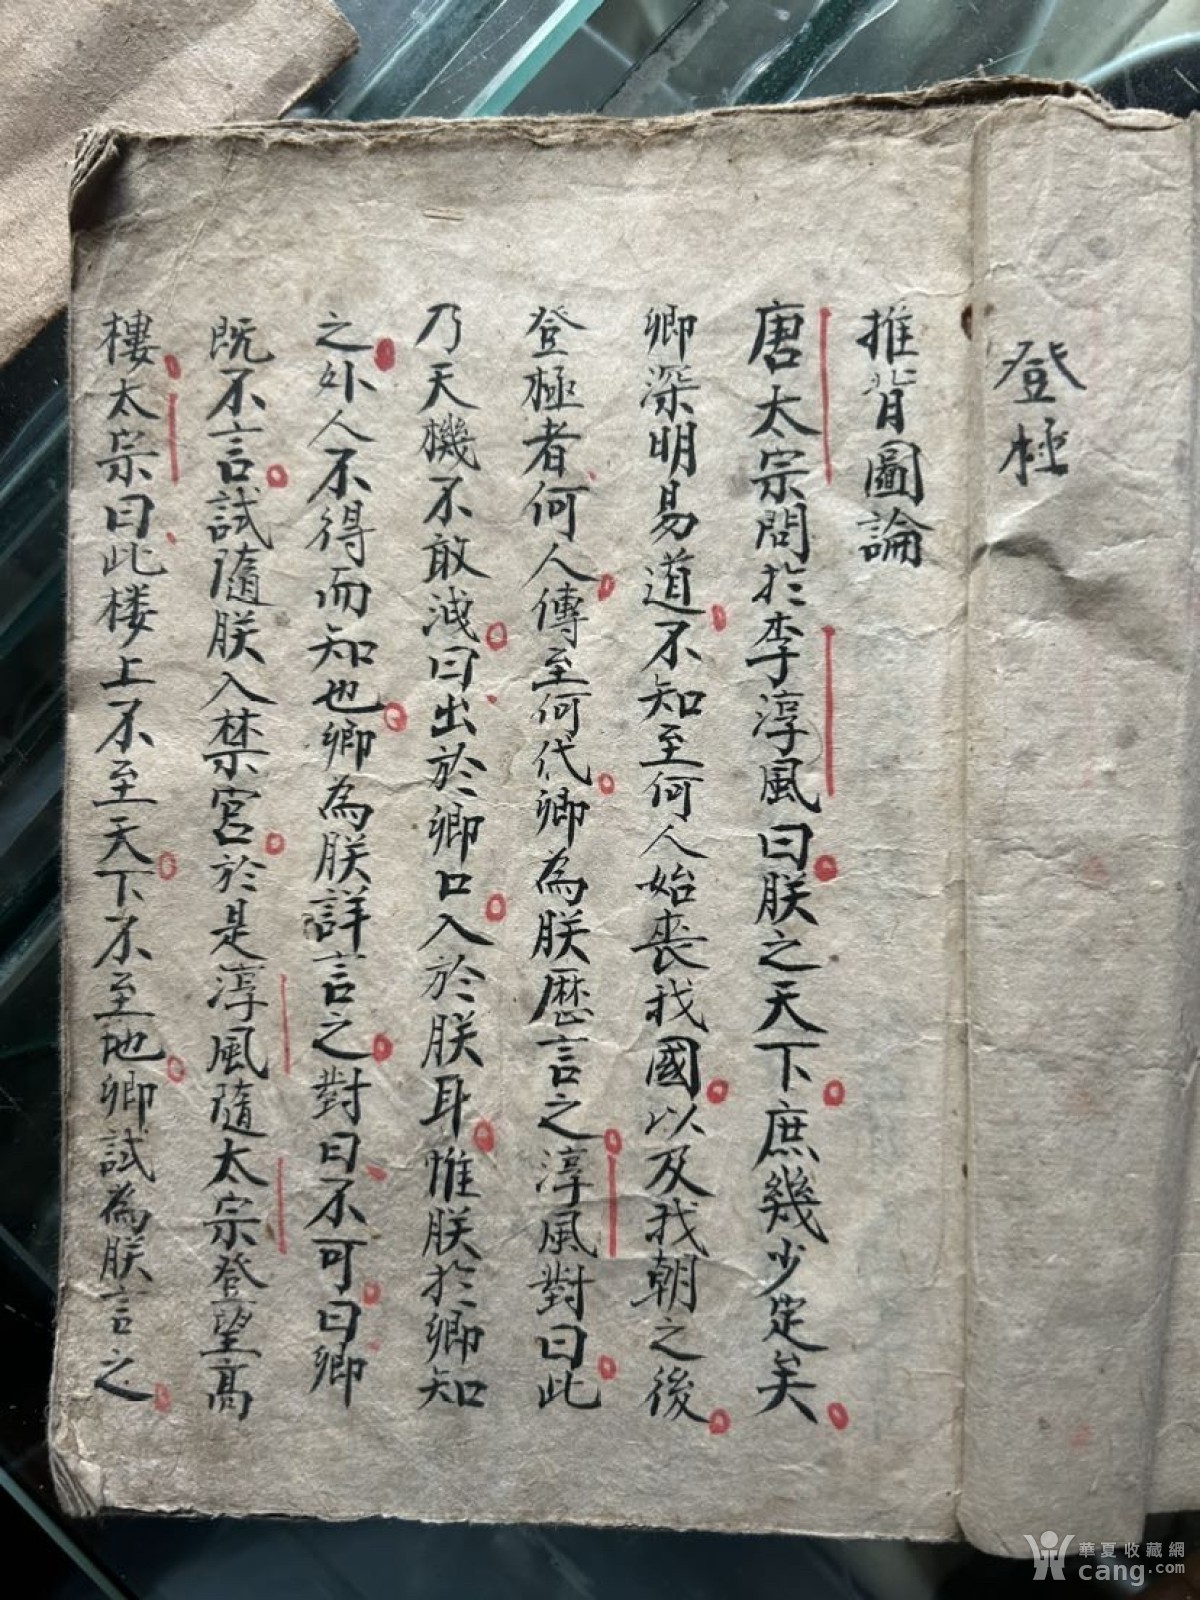 登極
推背圖論
唐太宗問於李淳風曰朕之天下庶幾少定矣
卿深明易道不知至何人始喪我國以及我朝之後
登極者何人傳至何代卿為朕歷言之淳風對曰此
乃天機不敢洩曰出於卿口入於朕耳惟朕於卿知
之外人不得而知也卿為朕詳言之對曰不可曰卿
既不言試隨朕入禁宮於是淳風隨太宗登望高
樓太宗曰此楼上不至天下不至地卿試為朕言之
華夏收藏網
cang.com